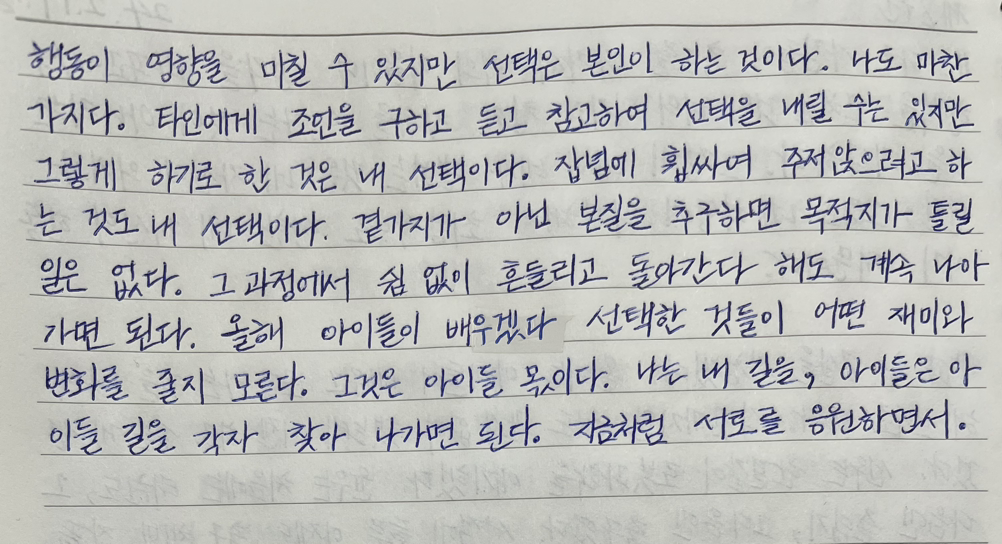 행동이 영향을 미칠 수 있지만 선택은 본인이 하는 것이다. 나도 마찬
가지다. 타인에게 조언을 구하고 듣고 참고하여 선택을 내릴 수는 있지만
그렇게 하기로 한 것은 내 선택이다. 잡념에 휩싸여 주저앉으려고 하
는 것도 내 선택이다. 곁가지가 아닌 본질을 추구하면 목적지가 틀릴
일은 없다. 그 과정에서 쉼 없이 흔들리고 돌아간다 해도 계속 나아
가면 된다. 올해 아이들이 배우겠다 선택한 것들이 어떤 재미와
변화를 줄지 모른다. 그것은 아이들 몫이다. 나는 내 길을, 아이들은 아
이들 길을 각자 찾아 나가면 된다. 지금처럼 서로를 응원하면서.